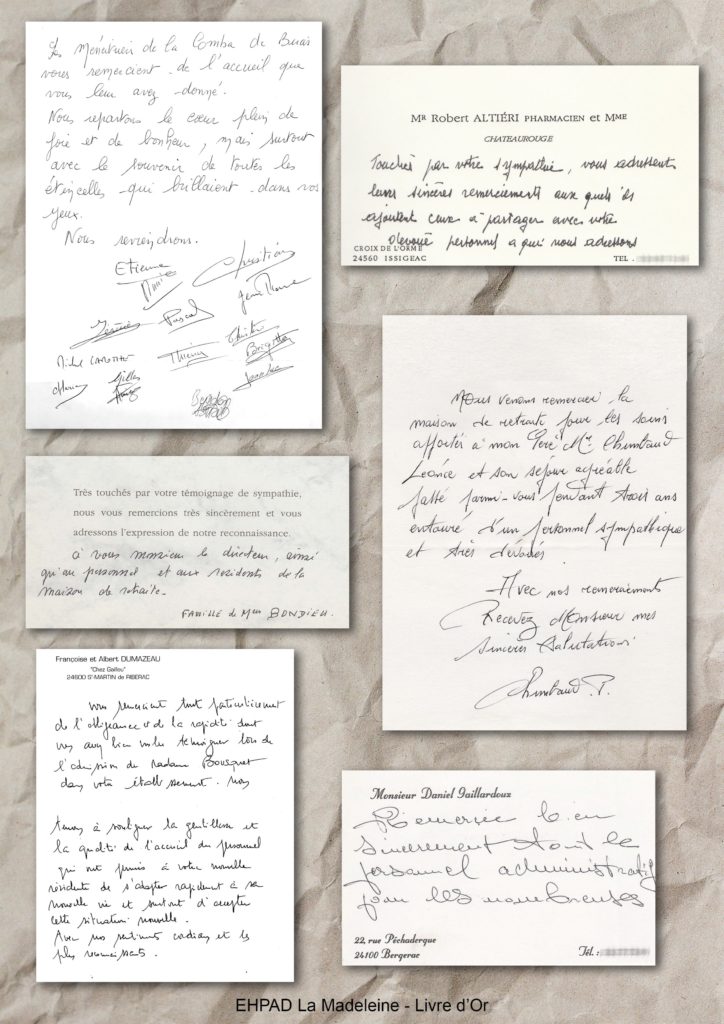 Les Ménétriers de la Comba de Buais
vous remercient de l'accueil que
vous leur avez donné.
Nous repartons le cœur plein de
joie et de bonheur, mais surtout
avec le souvenir de toutes les
étincelles qui brillaient dans vos
yeux.
Nous reviendrons.
Etienne
Christian
Marie
Jean Pierre
Pascal
Thierry
Christian
Brigitte
Michel
Gilles
MR Robert ALTIÉRI PHARMACIEN et MME
CHATEAUROUGE
Touchés par votre sympathie, vous adressent
leurs sincères remerciements aux quels ils
ajoutent ceux à partager avec votre
dévoué personnel a qui nous adressons
CROIX DE L'ORME
24560 ISSIGEAC
TEL.
Nous venons remercier, la
maison de retraite pour les soins
apportés à mon Père Mr Chimbaud
Léonce et son séjour agréable
passé parmi-vous pendant trois ans
entouré d'un personnel sympathique
et très dévoués.
Avec nos remerciements
Recevez Monsieur mes
sincères salutations
Chimbaud. P.
Très touchés par votre témoignage de sympathie,
nous vous remercions très sincèrement et vous
adressons l'expression de notre reconnaissance.
à vous monsieur le directeur, ainsi
qu'au personnel et aux résidents de la
maison de retraite.
FAMILLE de Mme BONDIEU.
Françoise et Albert DUMAZEAU
"Chez Gaillou"
24600 ST-MARTIN de RIBERAC
vous remercient tout particulièrement
de l'obligeance et de la rapidité dont
vous avez bien voulu témoigner lors de
l'admission de Madame Bousquet
dans votre établissement. Nous
tenons à souligner la gentillesse et
la qualité de l'accueil du personnel
qui ont permis à votre nouvelle
résidente de s'adapter rapidement à sa
nouvelle vie et surtout d'accepter
cette situation nouvelle.
Avec nos sentiments cordiaux et les
plus reconnaissants.
Monsieur Daniel Gaillardoux
Remercie bien
sincèrement tout le
personnel administratif
pour les nombreuses
22, rue Péchadergue
24100 Bergerac
Tél. :
EHPAD La Madeleine - Livre d'Or